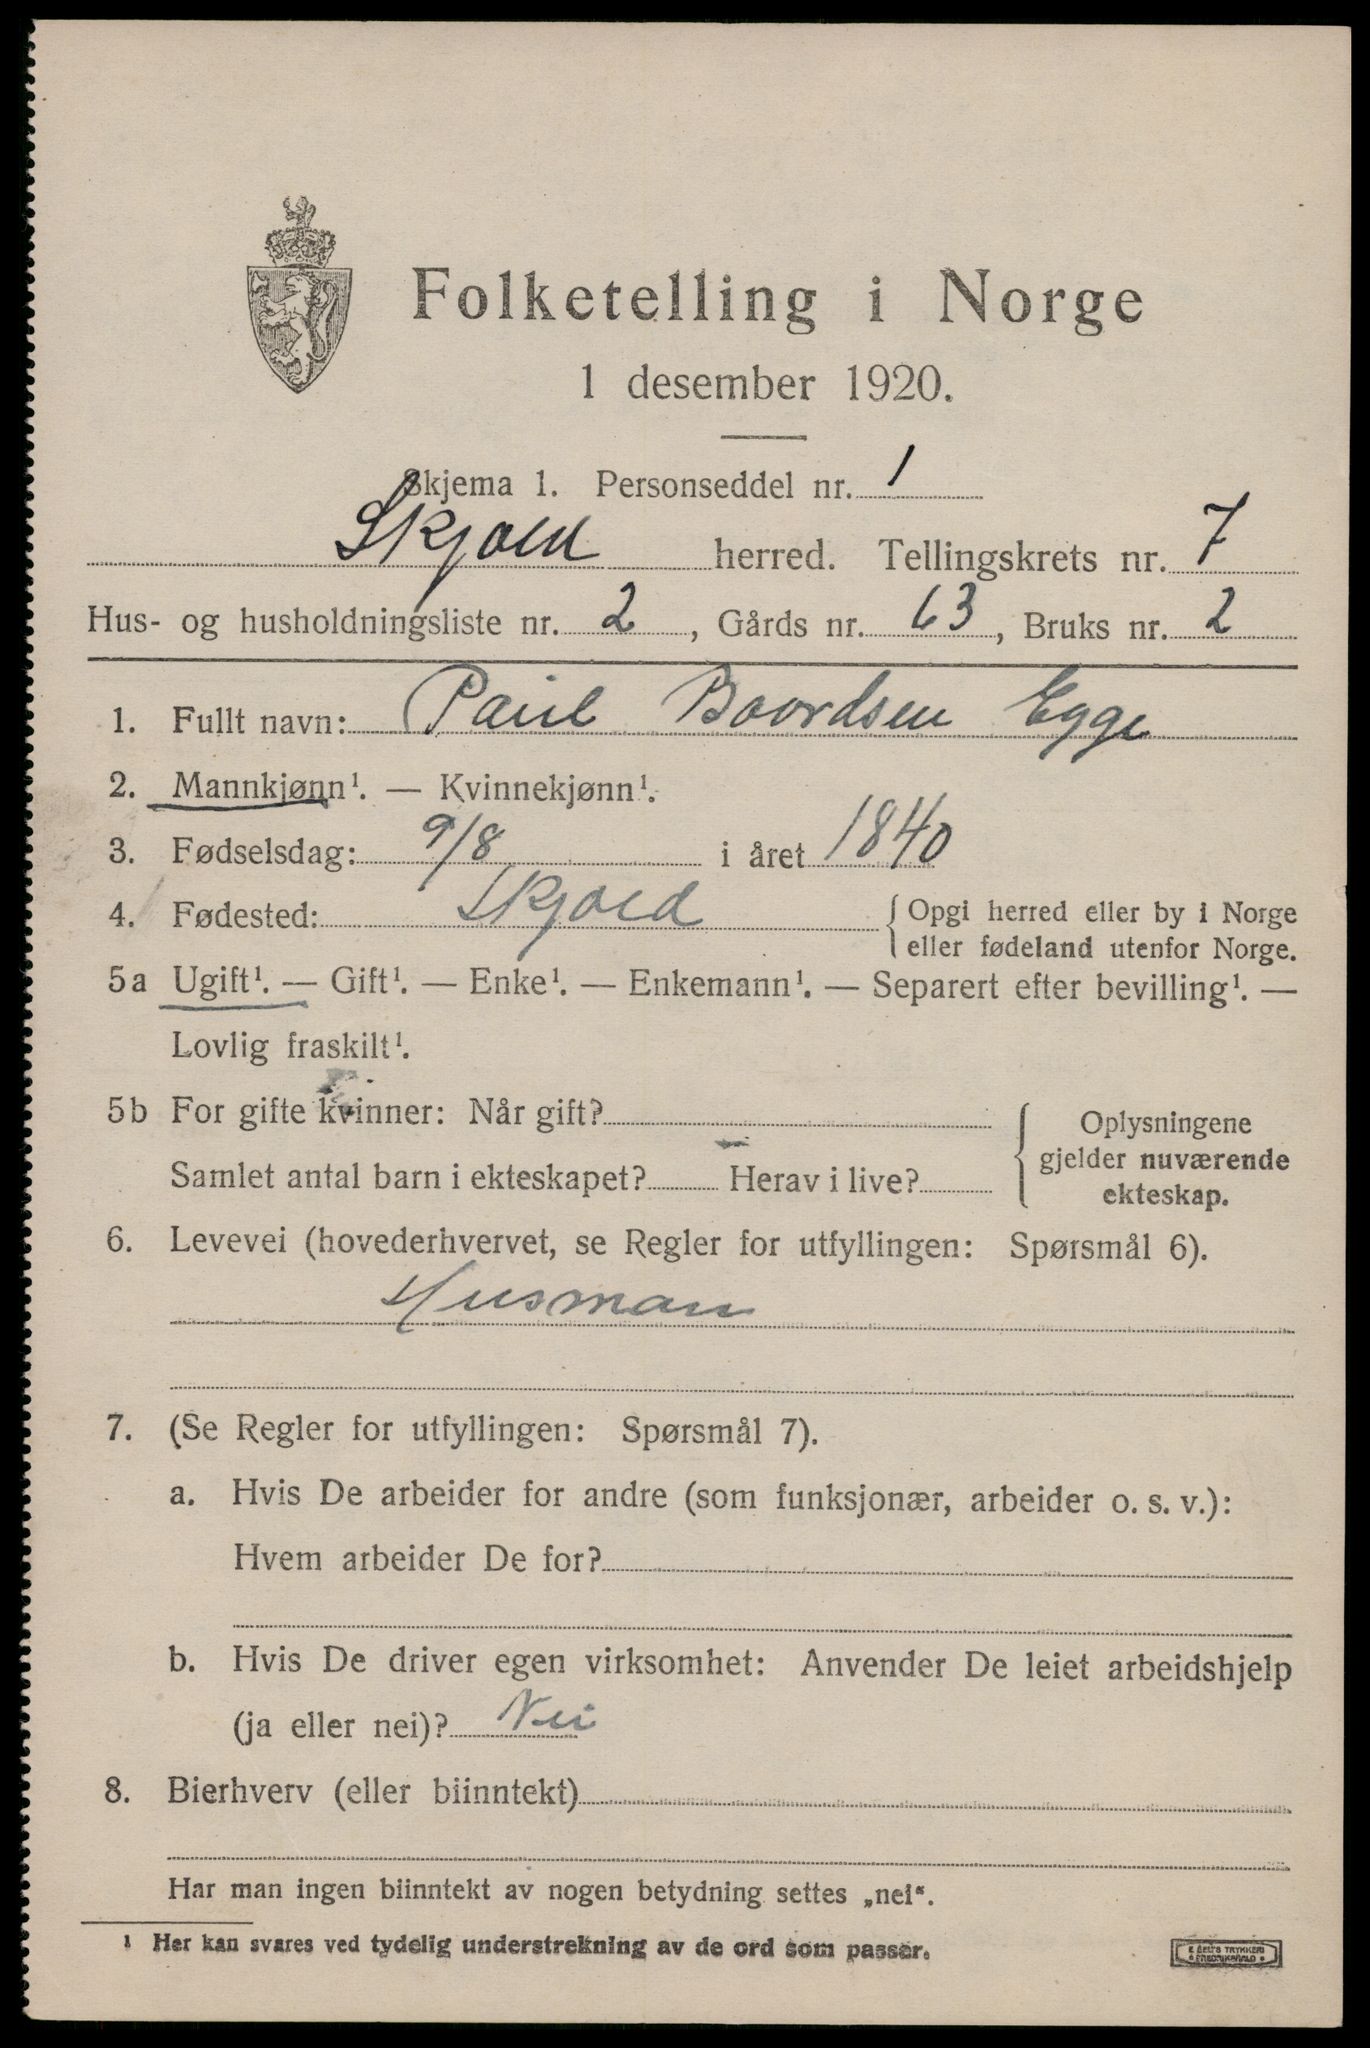 Folketelling i Norge
1 desember 1920.
Skjema 1. Personseddel nr. 1
Skjold herred. Tellingskrets nr. 7
Hus- og husholdningsliste nr. 2, Gårds nr. 63, Bruks nr. 2
1. Fullt navn: Paul Baardsen Egge
2. Mannkjønn¹. — Kvinnekjønn¹.
3. Fødselsdag: 9/8 i året 1840
4. Fødested: Skjold { Opgi herred eller by i Norge
eller fødeland utenfor Norge.
5a Ugift¹. — Gift¹. — Enke¹. — Enkemann¹. — Separert efter bevilling¹. —
Lovlig fraskilt¹.
5b For gifte kvinner: Når gift?
Samlet antal barn i ekteskapet? Herav i live?
Oplysningene
gjelder nuværende
ekteskap.
6. Levevei (hovederhvervet, se Regler for utfyllingen: Spørsmål 6).
Husman
7. (Se Regler for utfyllingen: Spørsmål 7).
a. Hvis De arbeider for andre (som funksjonær, arbeider o. s. v.):
Hvem arbeider De for?
b. Hvis De driver egen virksomhet: Anvender De leiet arbeidshjelp
(ja eller nei)? Nei
8. Bierhverv (eller biinntekt)
Har man ingen biinntekt av nogen betydning settes „nei“.
¹ Her kan svares ved tydelig understrekning av de ord som passer.
TRYKKERI